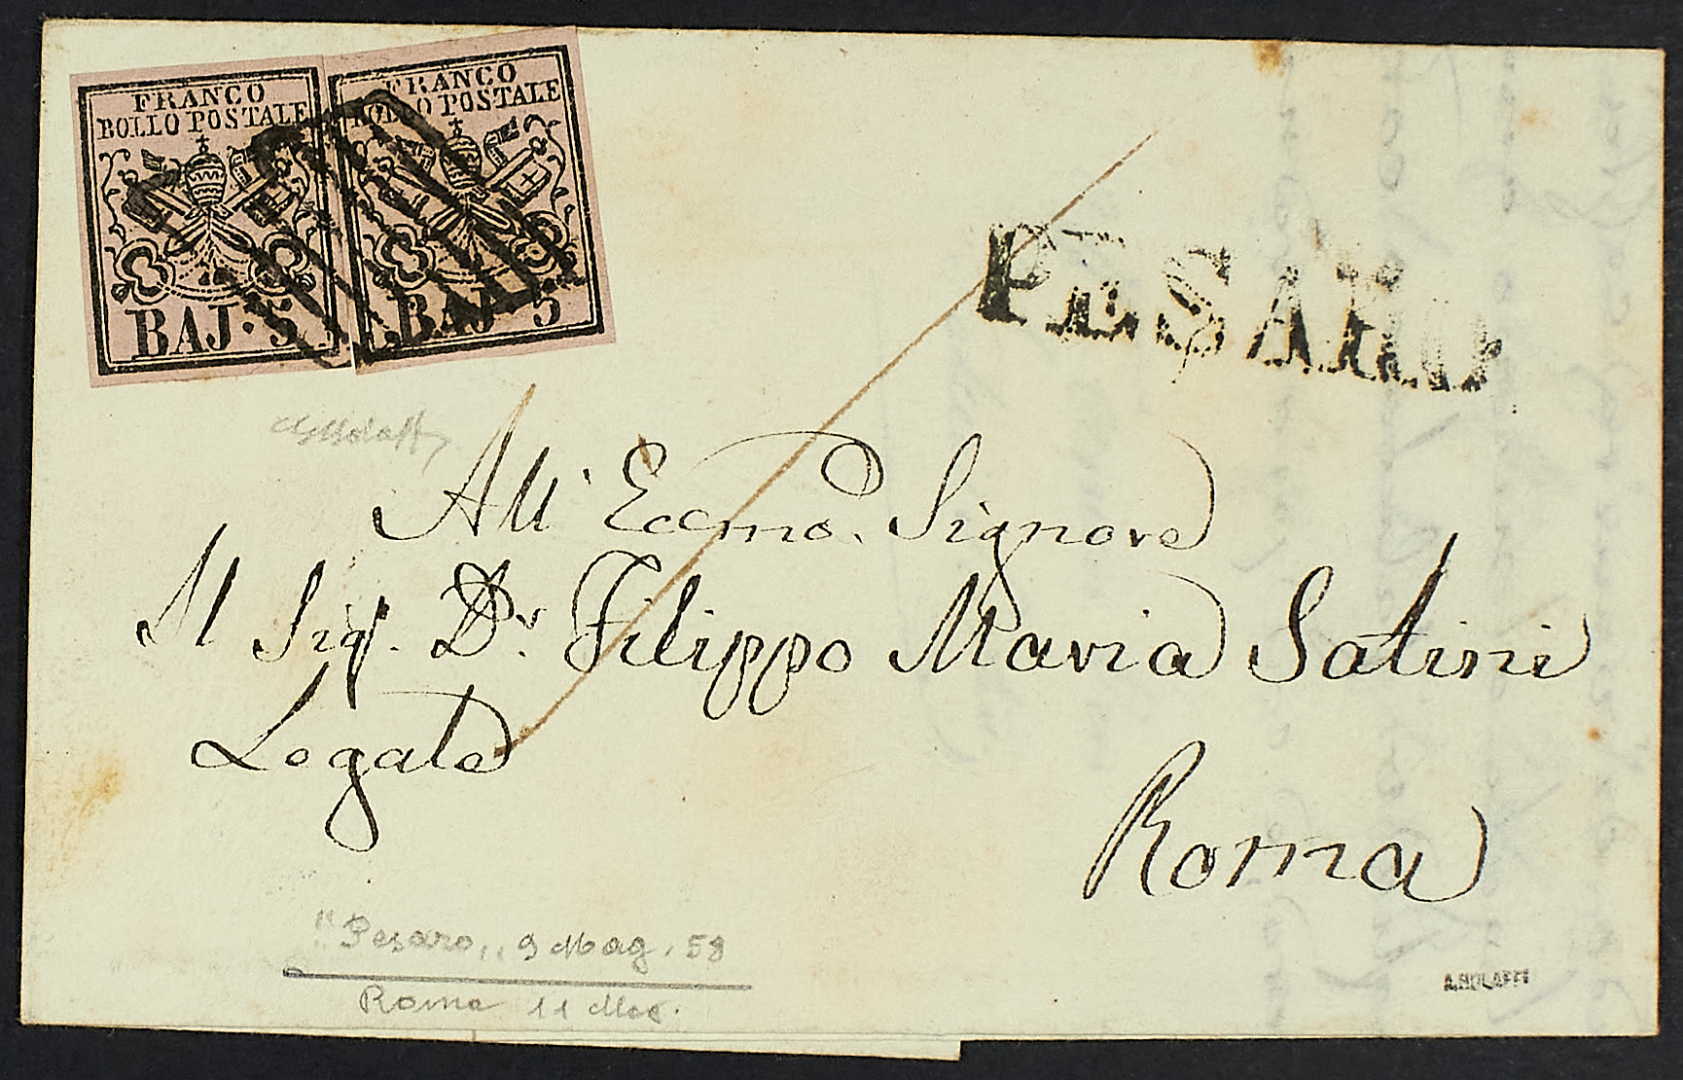 FRANCO
BOLLO POSTALE
BAJ. 5
FRANCO
BOLLO POSTALE
BAJ. 5
PESARO
All' Eccmo. Signore
Il Sig. Dr. Filippo Maria Satini
Legale
Roma
"Pesaro,, 9 Mag. 58
Roma 11 Mag.
A.BOLAFFI